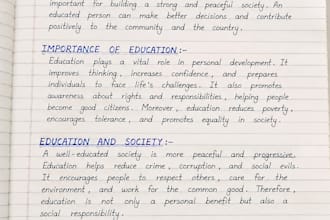 important for building a strong and peaceful society. An
educated person can make better decisions and contribute
positively to the community and the country.
IMPORTANCE OF EDUCATION:-
Education plays a vital role in personal development. It
improves thinking, increases confidence, and prepares
individuals to face life's challenges. It also promotes
awareness about rights and responsibilities, helping people
become good citizens. Moreover, education reduces poverty,
encourages tolerance, and promotes equality in society.
EDUCATION AND SOCIETY:-
A well-educated society is more peaceful and progressive.
Education helps reduce crime, corruption, and social evils.
It encourages people to respect others, care for the
environment, and work for the common good. Therefore,
education is not only a personal benefit but also a
social responsibility.